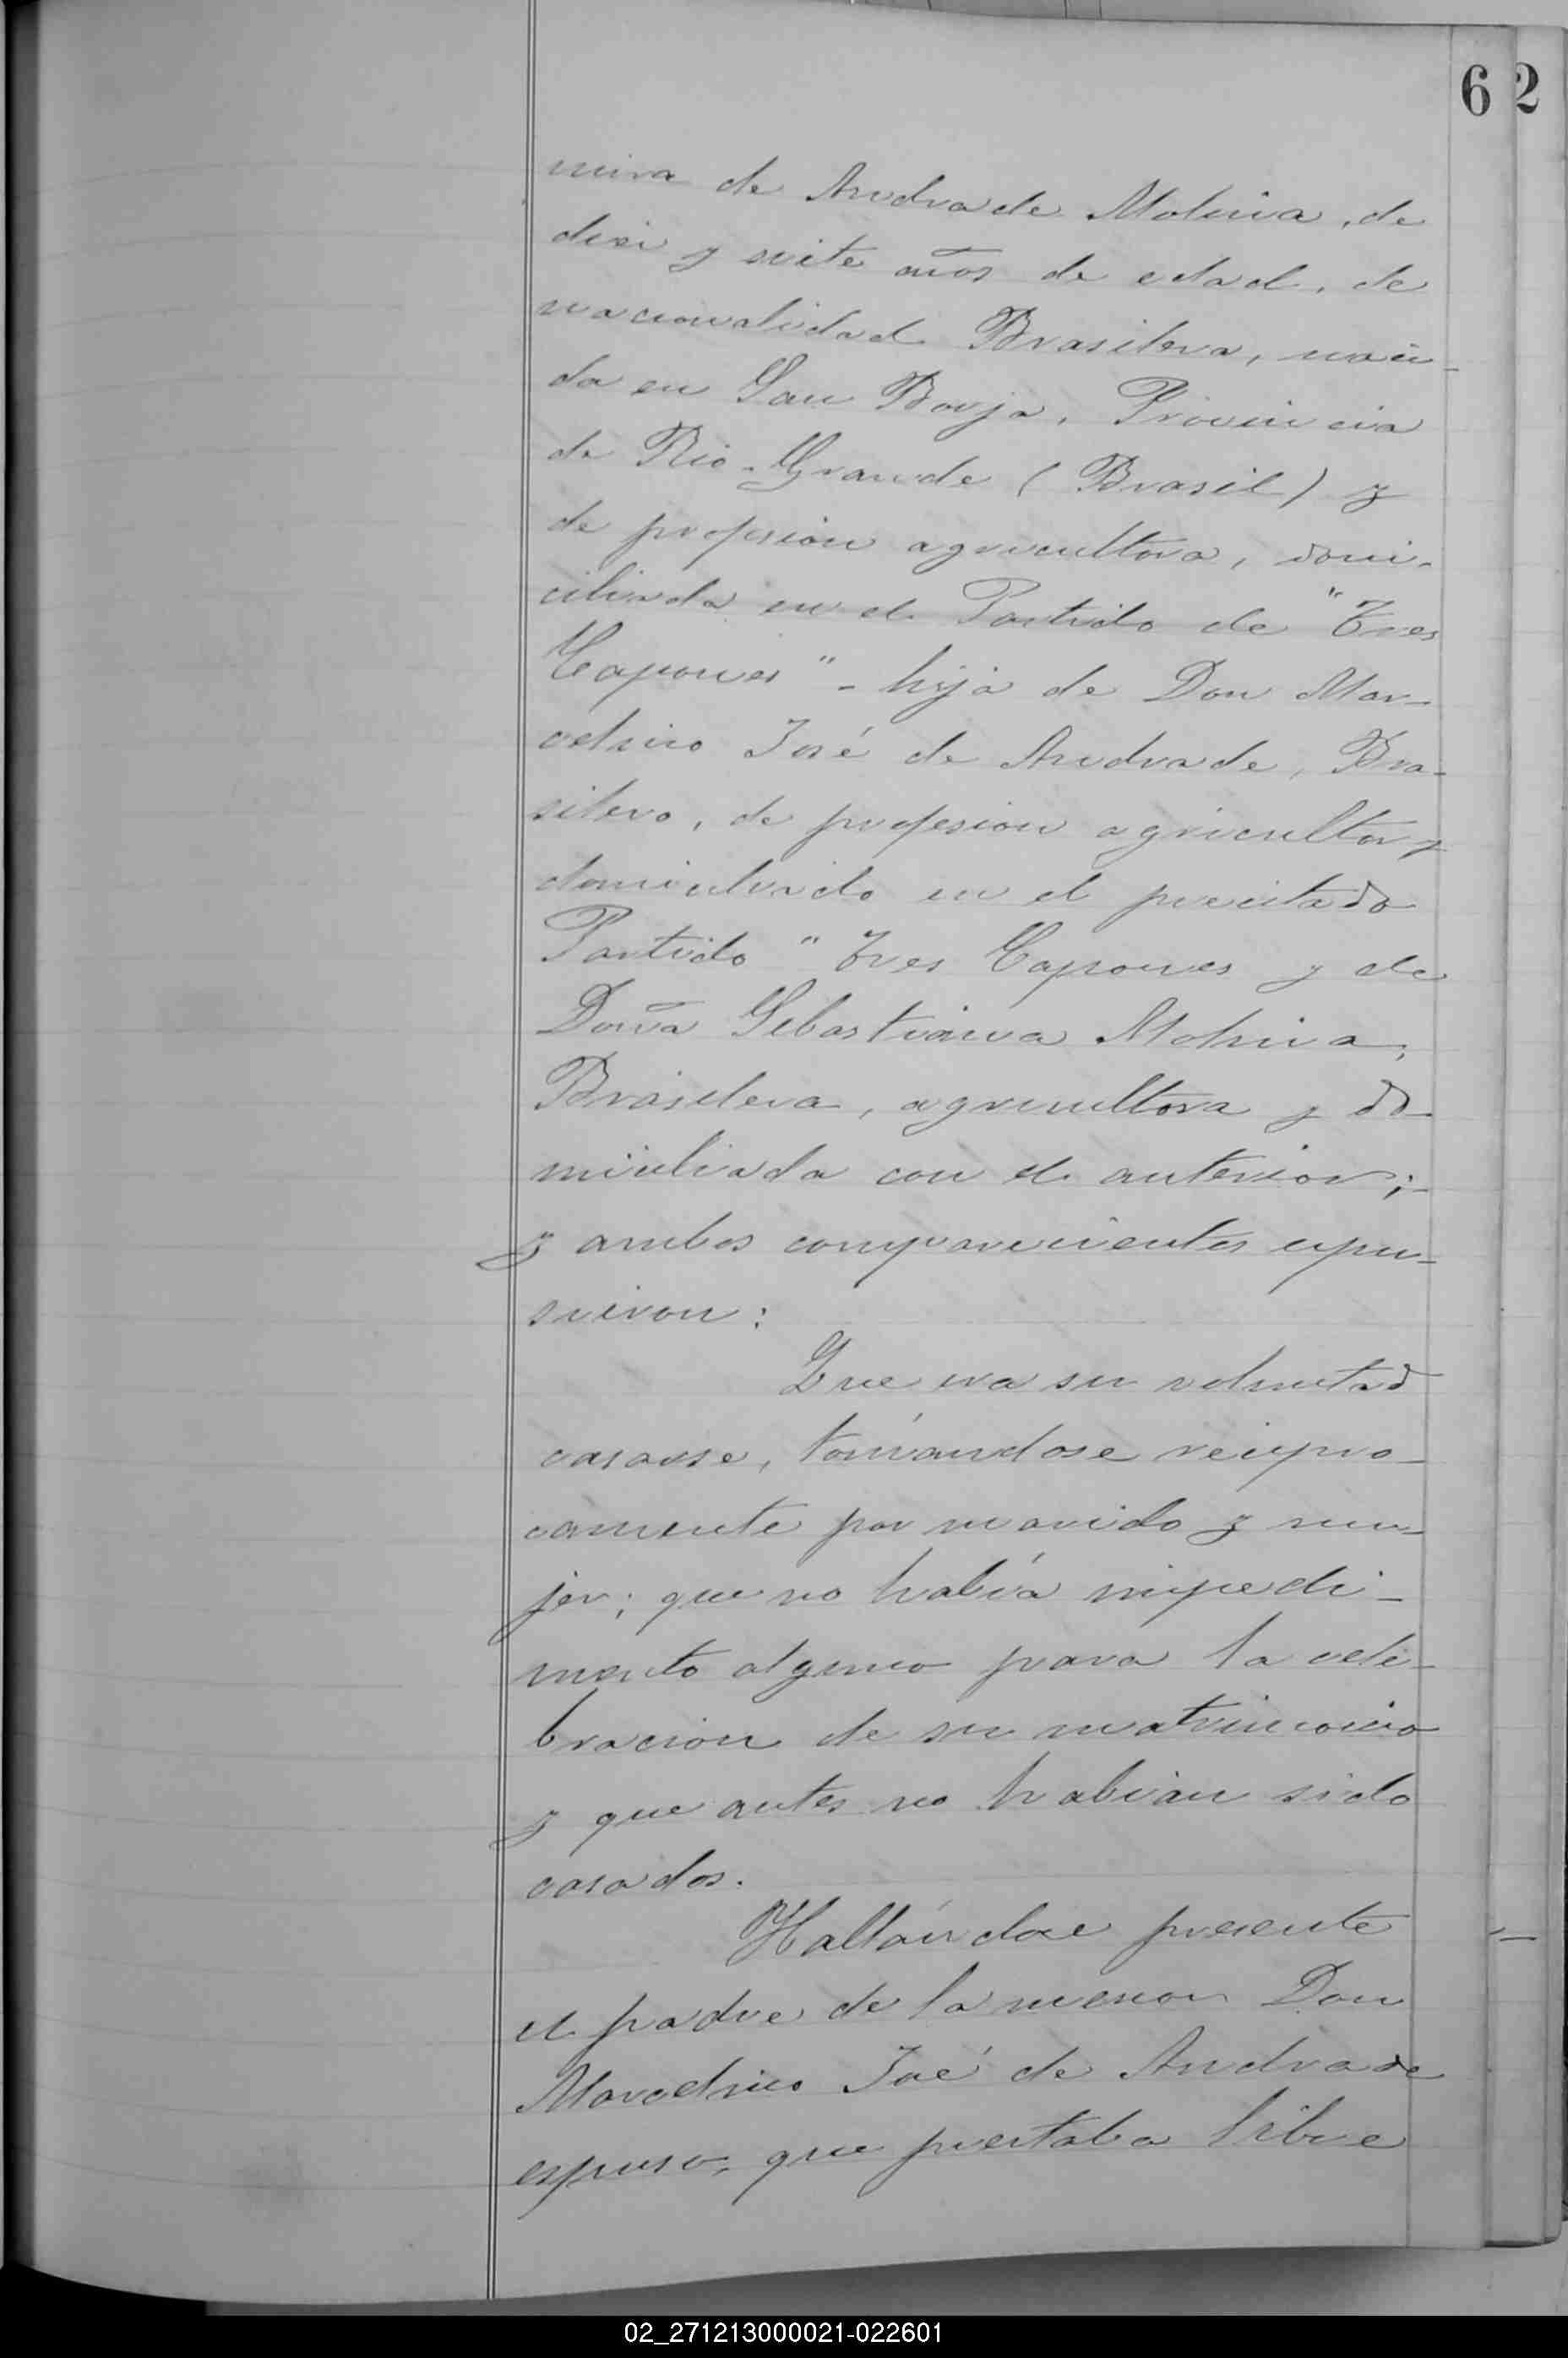 6 2
mira de Andrade Molina, de
diez y siete años de edad, de
nacionalidad Brasilera, naci-
da en San Borja, Provincia
de Rio-Grande (Brasil) y
de profesion agricultora, domi-
ciliada en el Partido de "Tres
Capones" - hija de Don Mar-
celino José de Andrade, Bra-
silero, de profesion agricultor y
domiciliado en el precitado
Partido "Tres Capones y de
Doña Sebastiana Molina,
Brasilera, agricultora y do-
miciliada con el anterior;-
y ambos comparecientes espu-
sieron:
Que era su voluntad
casarse, tomándose recipro-
camente por marido y mu-
jer; que no había impedi-
mento alguno para la cele-
bracion de su matrimonio
y que antes no habian sido
casados.
Hallándose presente
el padre de la menor Don
Marcelino José de Andrade
espuso, que prestaba libre
02_271213000021-022601